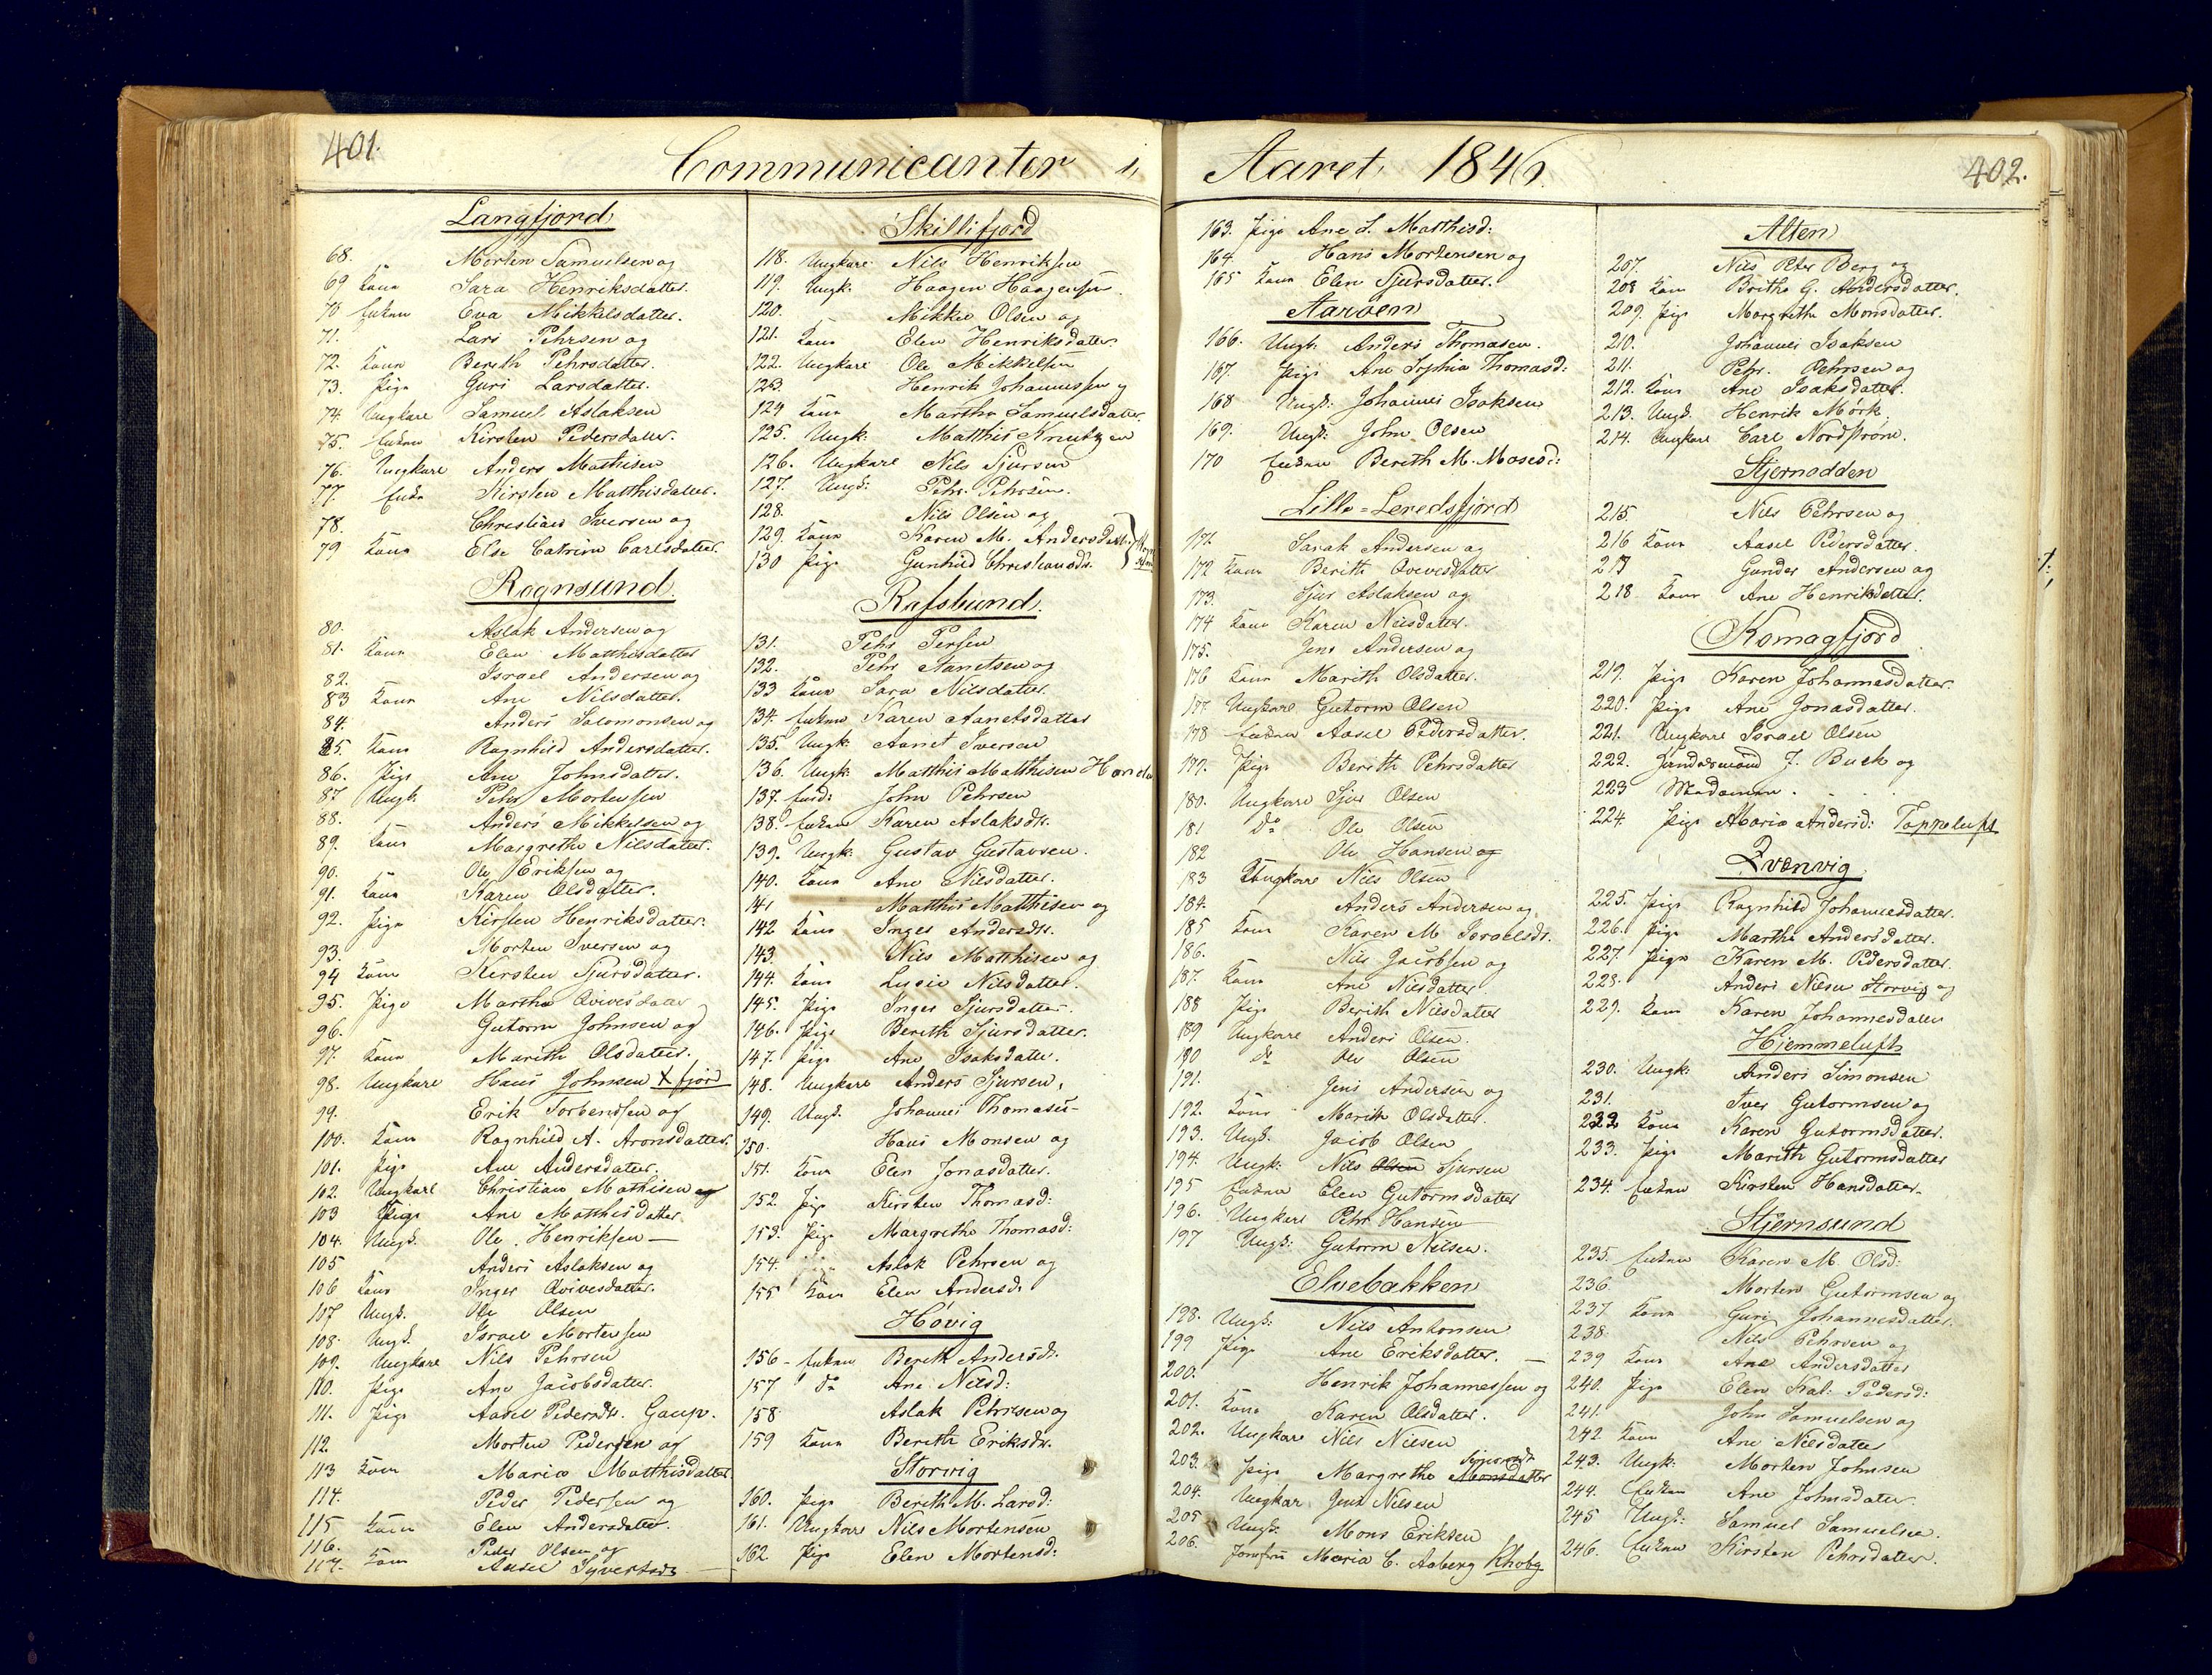 401.
Communicanter i
Langfjord
68. Morten Samuelsen og
69 Kone Sara Henriksdatter.
70 Enken Eva Mikkelsdatter.
71. Lars Pehrsen og
72. Konen Bereth Pehrsdatter.
73. Pige Guri Larsdatter.
74. Ungkarl Samuel Aslaksen
75. Enken Kirsten Pedersdatter.
76. Ungkarl Anders Mathisen
77 Enke Kirsten Matthisdatter.
78. Christian Iversen og
79 Kone Else Catrine Carlsdatter.
Rognsund.
80. Aslak Andersen og
81. Kone Elen Matthisdatter
82. Israel Andersen og
83 Kone Ane Nilsdatter.
84. Anders Salomonsen og
85 Kone Ragnhild Andersdatter.
86. Pige Ane Johnsdatter.
87 Ungk. Pehr Mortensen
88. Anders Mikkelsen og
89. Kone Margrethe Nilsdatter.
90. Ole Eriksen og
91. Kone Karen Olsdatter.
92. Pige Kirsten Henriksdatter.
93. Morten Iversen og
94 Kone Kirsten Sjursdatter.
95. Pige Martha Qvivesdatter
96. Gutorm Johnsen og
97. Kone Marith Olsdatter.
98. Ungkarl Hans Johnsen X fjord
99. Erik Torbensen og
100. Kone Ragnhild A. Aronsdatter.
101. Pige Ane Andersdatter.
102. Ungkarl Christian Mathisen og
103 Pige Ane Matthisdatter
104. Ungk. Ole Henriksen —
105 Anders Aslaksen og
106 Kone Inger Qvivesdatter.
107 Ungk. Ole Olsen
108. Ungk. Israel Mortensen
109. Ungkarl Nils Pehrsen
110. Pige Ane Jacobsdatter.
111. Pige Aasel Pedersdtr. Gaup.
112. Morten Pedersen og
113 Kone Maria Matthisdatter
114. Peder Pedersen og
115 Kone Elen Andersdatter.
116. Peder Olsen og
117. Kone Aasel Syversdr
Skillifjord
118. Ungkarl Nils Henriksen
119. Ungk: Haagen Haagensen
120. Mikkel Olsen og
121. Kone Elen Henriksdatter
122. Ungkarl Ole Mikkelsen
123. Henrik Johannessen og
124 Kone Martha Samuelsdatter
125. Ungk: Matthis Knutzen
126. Ungkarl Nils Sjursen
127. Ungk: Pehr Pehrsen.
128. Nils Olsen og
129. Kone Karen M. Andersdatt.
130 Pige Gunhild Christiansdr.
Rafsbund.
131. Pehr Persen
132. Pehr Aanetsen og
133 Kone Sara Nilsdatter.
134. Enken Karen Aanetsdatter
135. Ungk: Aanet Iversen
136. Ungk: Matthis Matthisen
137. John Pehrsen
138. Enken Karen Aslaksdr.
139. Ungk: Gustav Gustavsen.
140. Kone Ane Nilsdatter.
141 Matthis Matthisen og
142 Kone Inger Andersdr.
143. Nils Matthisen og
144. Kone Lucie Nilsdatter.
145. Pige Inger Sjursdatter.
146. Pige Berith Sjursdatter.
147. Pige Ane Isaksdatter.
148. Ungkarl Anders Sjursen,
149. Ungk. Johannes Thomasen
150. Hans Monsen og
151. Kone Elen Jonasdatter.
152. Pige Kirsten Thomasd:
153. Pige Margrethe Thomasd:
154. Aslak Pehrsen og
155 Kone Elen Andersd.
Høvig
156 – Enken Bereth Andersdr.
157 do Ane Nilsd:
158 Aslak Pehrsen og
159 Kone Bereth Eriksdr.
Storvig
160. Pige Berith M. Larsd:
161. Ungkarl Nils Mortensen
162. Pige Elen Mortensd:
Aaret 1846.
402.
163. Pige Ane L. Matthisd:
164. Hans Mortensen og
165 Kone Elen Sjursdatter.
Aarøen
166. Ungk: Anders Thomasen.
167. Pige Ane Sophia Thomasd:
168 Ungk: Johannes Isaksen
169. Ungk: John Olsen
170 Enken Berith M. Mosesd:
Lille-Leredsfjord
171. Isaak Andersen og
172 Kone Berith Qvivesdatter
173. Sjur Aslaksen og
174 Kone Karen Nilsdatter.
175. Jens Andersen og
176 Kone Marith Olsdatter.
177 Ungkarl Gutorm Olsen
178 Enken Aasel Pedersdatter.
179. Pige Berith Pehrsdatter
180. Ungkarl Sjur Olsen
181 do Ole Olsen
182 Ole Hansen og
183 Ungkarl Nils Olsen
184. Anders Andersen og
185 Kone Karen M. Israelsdr.
186. Nils Jacobsen og
187. Kone Ane Nilsdatter
188 Pige Berith Nilsdatter
189 Ungkarl Anders Olsen.
190 do Ole Olsen
191. Jens Andersen og
192. Kone Marith Olsdatter.
193. Ungk. Jacob Olsen
194. Ungk: Nils Olsen Sjursen
195 Enken Elen Gutormsdatter
196. Ungkarl Pehr Hansen
197 Ungk: Gutorm Nilsen.
Elvebakken
198. Ungk: Nils Antonsen
199 Pige Ane Eriksdatter. —
200. Henrik Johannessen og
201. Kone Karen Olsdatter.
202. Ungkarl Nils Nilsen
203. Pige Margrethe Monsdatter
204. Ungkarl Jens Nilsen
205 Ungk. Mons Eriksen
206. Jomfru Maria C. Aaberg
Alten
207. Nils Peter Berg og
208 Kone Britha G. Andersdatter.
209. Pige Margrethe Monsdatter.
210. Johannes Isaksen
211. Pehr. Pehrsen og
212. Kone Ane Isaksdatter.
213. Ungk. Henrik Mørk.
214. Ungkarl Carl Nordstrøm.
Stjernodden
215. Nils Pehrsen og
216 Kone Aasel Pedersdatter.
217 Gunder Andersen og
218 Kone Ane Henriksdatter.
Komagfjord
219. Pige Karen Johannesdatter.
220. Pige Ane Jonasdatter.
221. Ungkarl Israel Olsen
222. J. Buck og
223 Madamen. . . .
224. Pige Maria Andersd: Toppeluft
Qvænvig
225. Pige Ragnhild Johannesdatter.
226. Pige Marthe Andersdatter.
227. Pige Karen M. Pedersdatter.
228. Anders Nilsen Storvig og
229. Kone Karen Johannesdatter
Hjemmeluft
230. Ungk: Anders Simonsen
231. Iver Gutormsen og
232 Kone Karen Gutormsdatter.
233. Pige Marith Gutormsdatter
234. Enken Kirsten Hansdatter.
Stjernsund
235. Enken Karen M. Olsd:
236. Morten Gutormsen og
237. Kone Guri Johannesdatter.
238. Nils Pehrsen og
239 Kone Ane Andersdatter
240. Pige Elen Kat: Pedersd:
241. John Samuelsen og
242 Kone Ane Nilsdatter
243. Ungk: Morten Johnsen
244. Enken Ane Johnsdatter.
245 Ungk: Samuel Samuelsen.
246. Enken Kirsten Pehrsdatter.